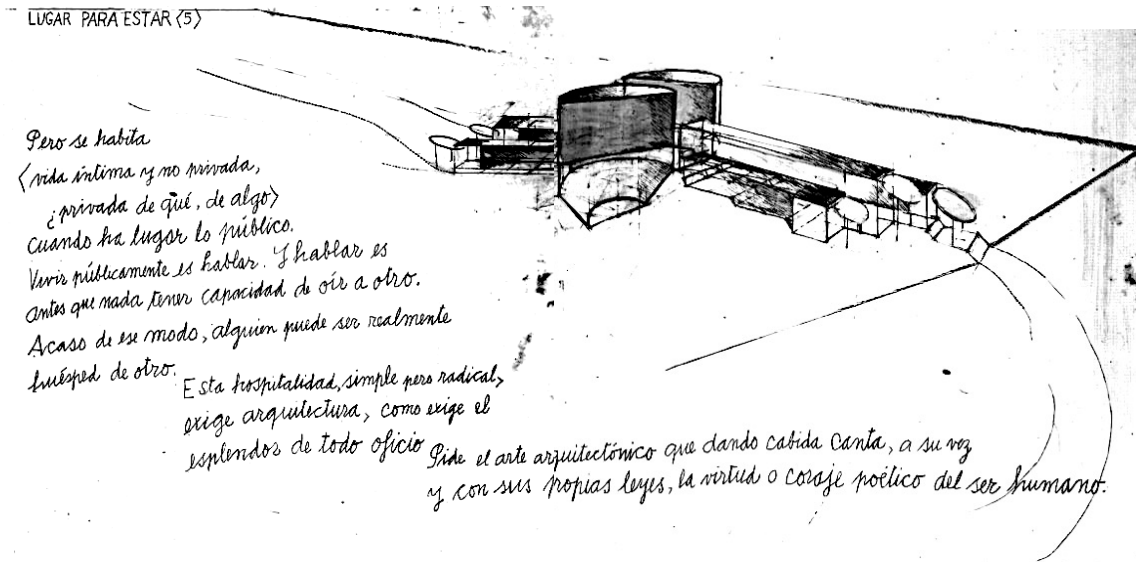 LUGAR PARA ESTAR <5>
Pero se habita
<vida íntima y no privada,
¿privada de qué, de algo>
cuando ha lugar lo público.
Vivir públicamente es hablar. Y hablar es
antes que nada tener capacidad de oír a otro.
Acaso de ese modo, alguien puede ser realmente
huésped de otro.
Esta hospitalidad, simple pero radical,
exige arquitectura, como exige el
esplendor de todo oficio
Pide el arte arquitectónico que dando cabida canta, a su vez
y con sus propias leyes, la virtud o coraje poético del ser humano.